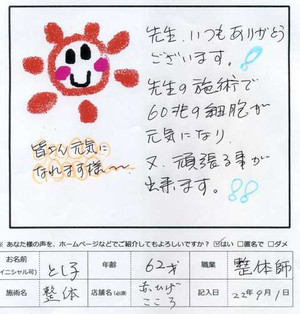 先生、いつもありがとう
ございます。
先生の施術で
60兆の細胞が
元気になり、
又、頑張る事が
出来ます。
皆さん元気に
なれます様〜
※ あなた様の声を、ホームページなどでご紹介してもよろしいですか？ ☑はい □匿名で □ダメ
お名前 (イニシャル可) とし子 年齢 62才 職業 整体師
施術名 整体 店舗名(必須) 赤ひげこころ 記入日 22年9月1日